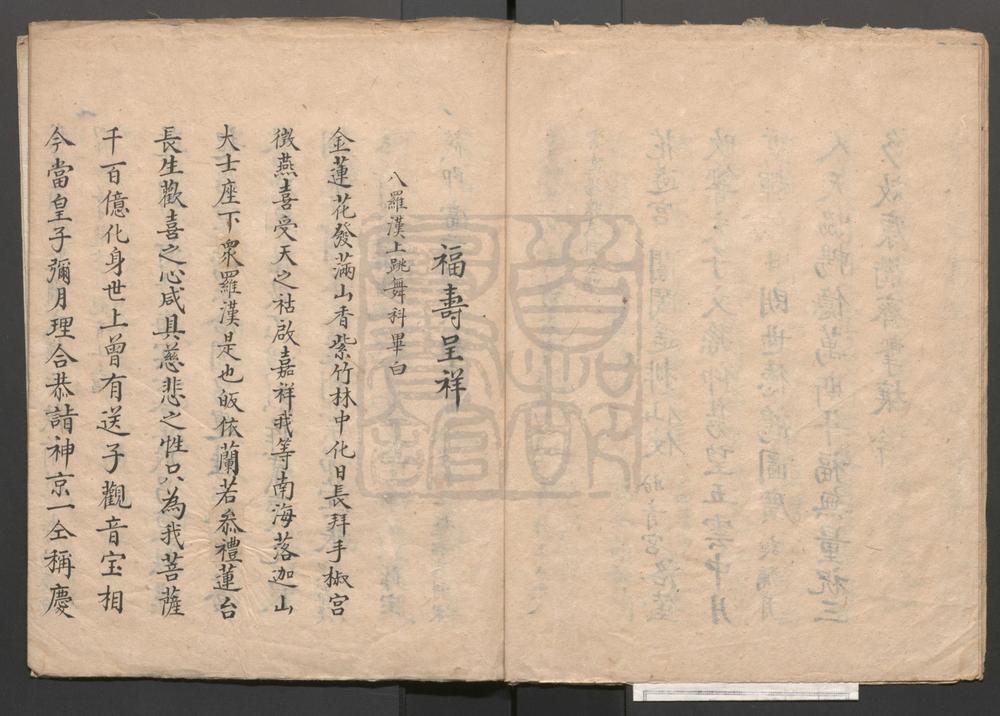 福壽呈祥
八羅漢上跳舞科畢白
金蓮花發滿山香紫竹林中化日長拜手椒宮
徵燕喜受天之祜啟嘉祥我等南海落迦山
大士座下眾羅漢是也皈依蘭若叅禮蓮台
長生歡喜之心咸具慈悲之性只為我菩薩
千百億化身世上曾有送子觀音宝相
今當皇子彌月理合恭詣神京一仝稱慶